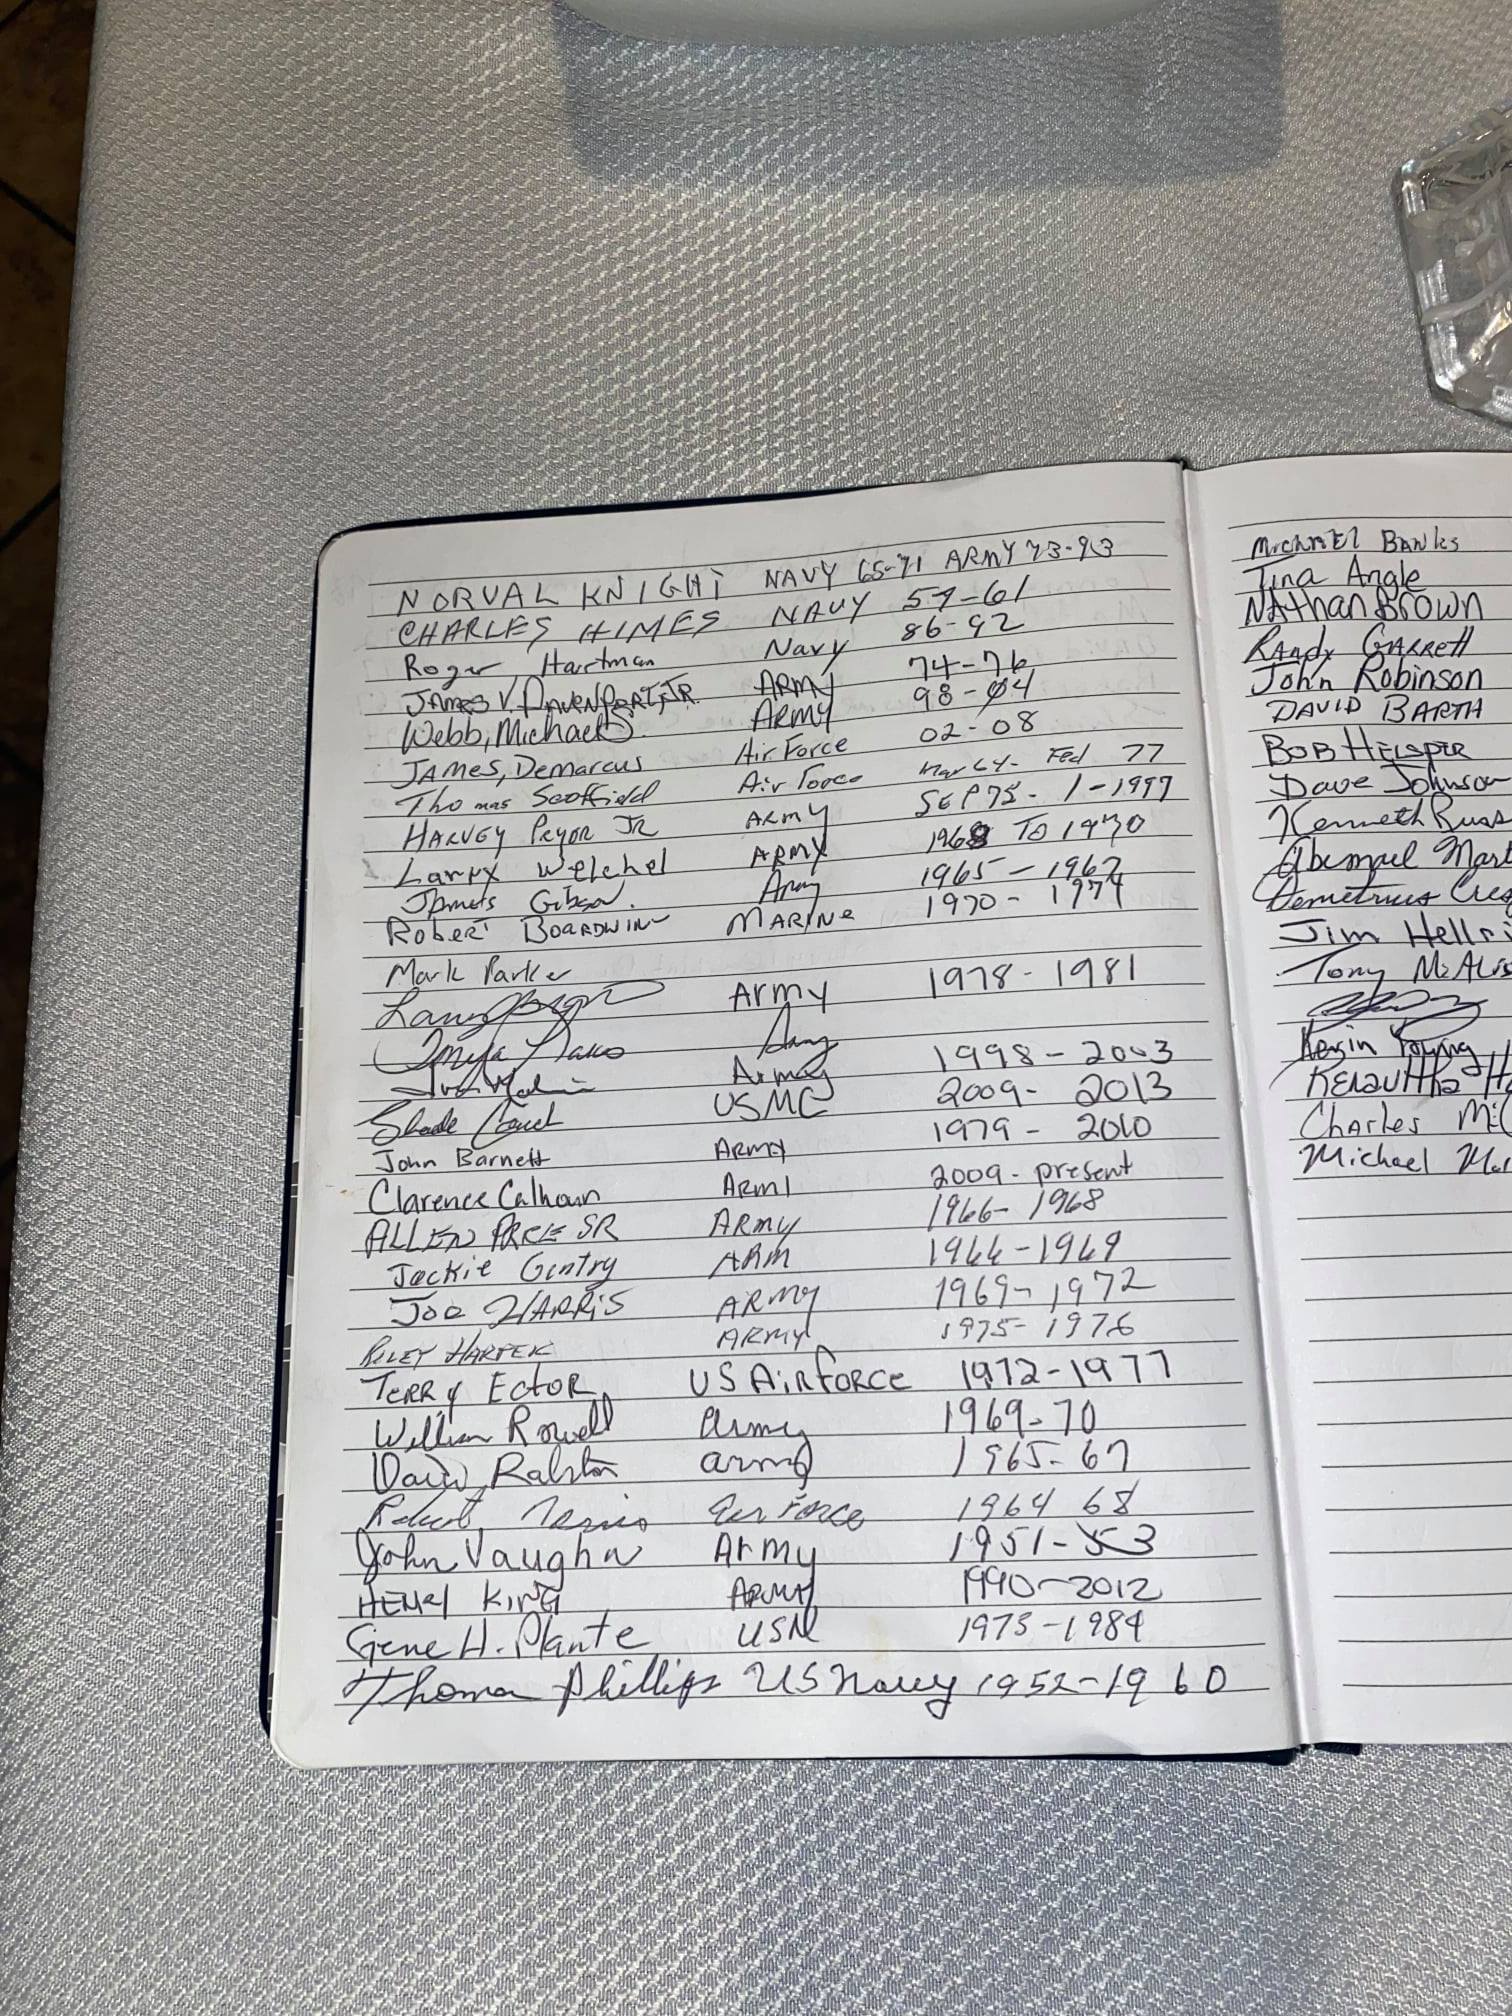 NORVAL KNIGHT NAVY 65-71 ARMY 73-93
CHARLES HIMES NAVY 57-61
Roger Hartman Navy 86-92
JAMES V. DAVENPORT, JR. ARMY 74-76
Webb, Michael S. ARMY 98-04
JAMES, Demarcus Air Force 02-08
Thomas Scoffield Air Force Mar 64- Feb 77
HARVEY Pryor JR ARMY SEP75- 1-1997
Larry Welchel ARMY 1968 TO 1970
James Gibson Army 1965-1967
Robert BOARDWINE MARINE 1970-1974
Mark Parker
Army 1978-1981
Army
Army 1998-2003
Shade USMC 2009-2013
John Barnett ARMY 1979-2010
Clarence Calhoun ARMY 2009-present
ALLEN SR ARMY 1966-1968
Jackie Gentry ARM
JOE HARRIS ARMY 1969-1972
RILEY HARPER ARMY 1975-1976
TERRY ECTOR US AIRFORCE 1972-1977
William Rowell Army 1969-70
David Ralston army 1965-67
Robert Air Force 1964 68
John Vaughn Army 1951-53
HENRY KING ARMY 1990-2012
Gene H. Plante USN 1973-1984
Thomas Phillips US Navy 1952-1960
MICHAEL BANKS
Tina Angle
NAthan Brown
RAndy GARRETT
John Robinson
DAVID BARTH
BOB
Dave Johnson
Kenneth
Abimael
Demetrius
Jim
Tony
Kevin Young
Charles
Michael